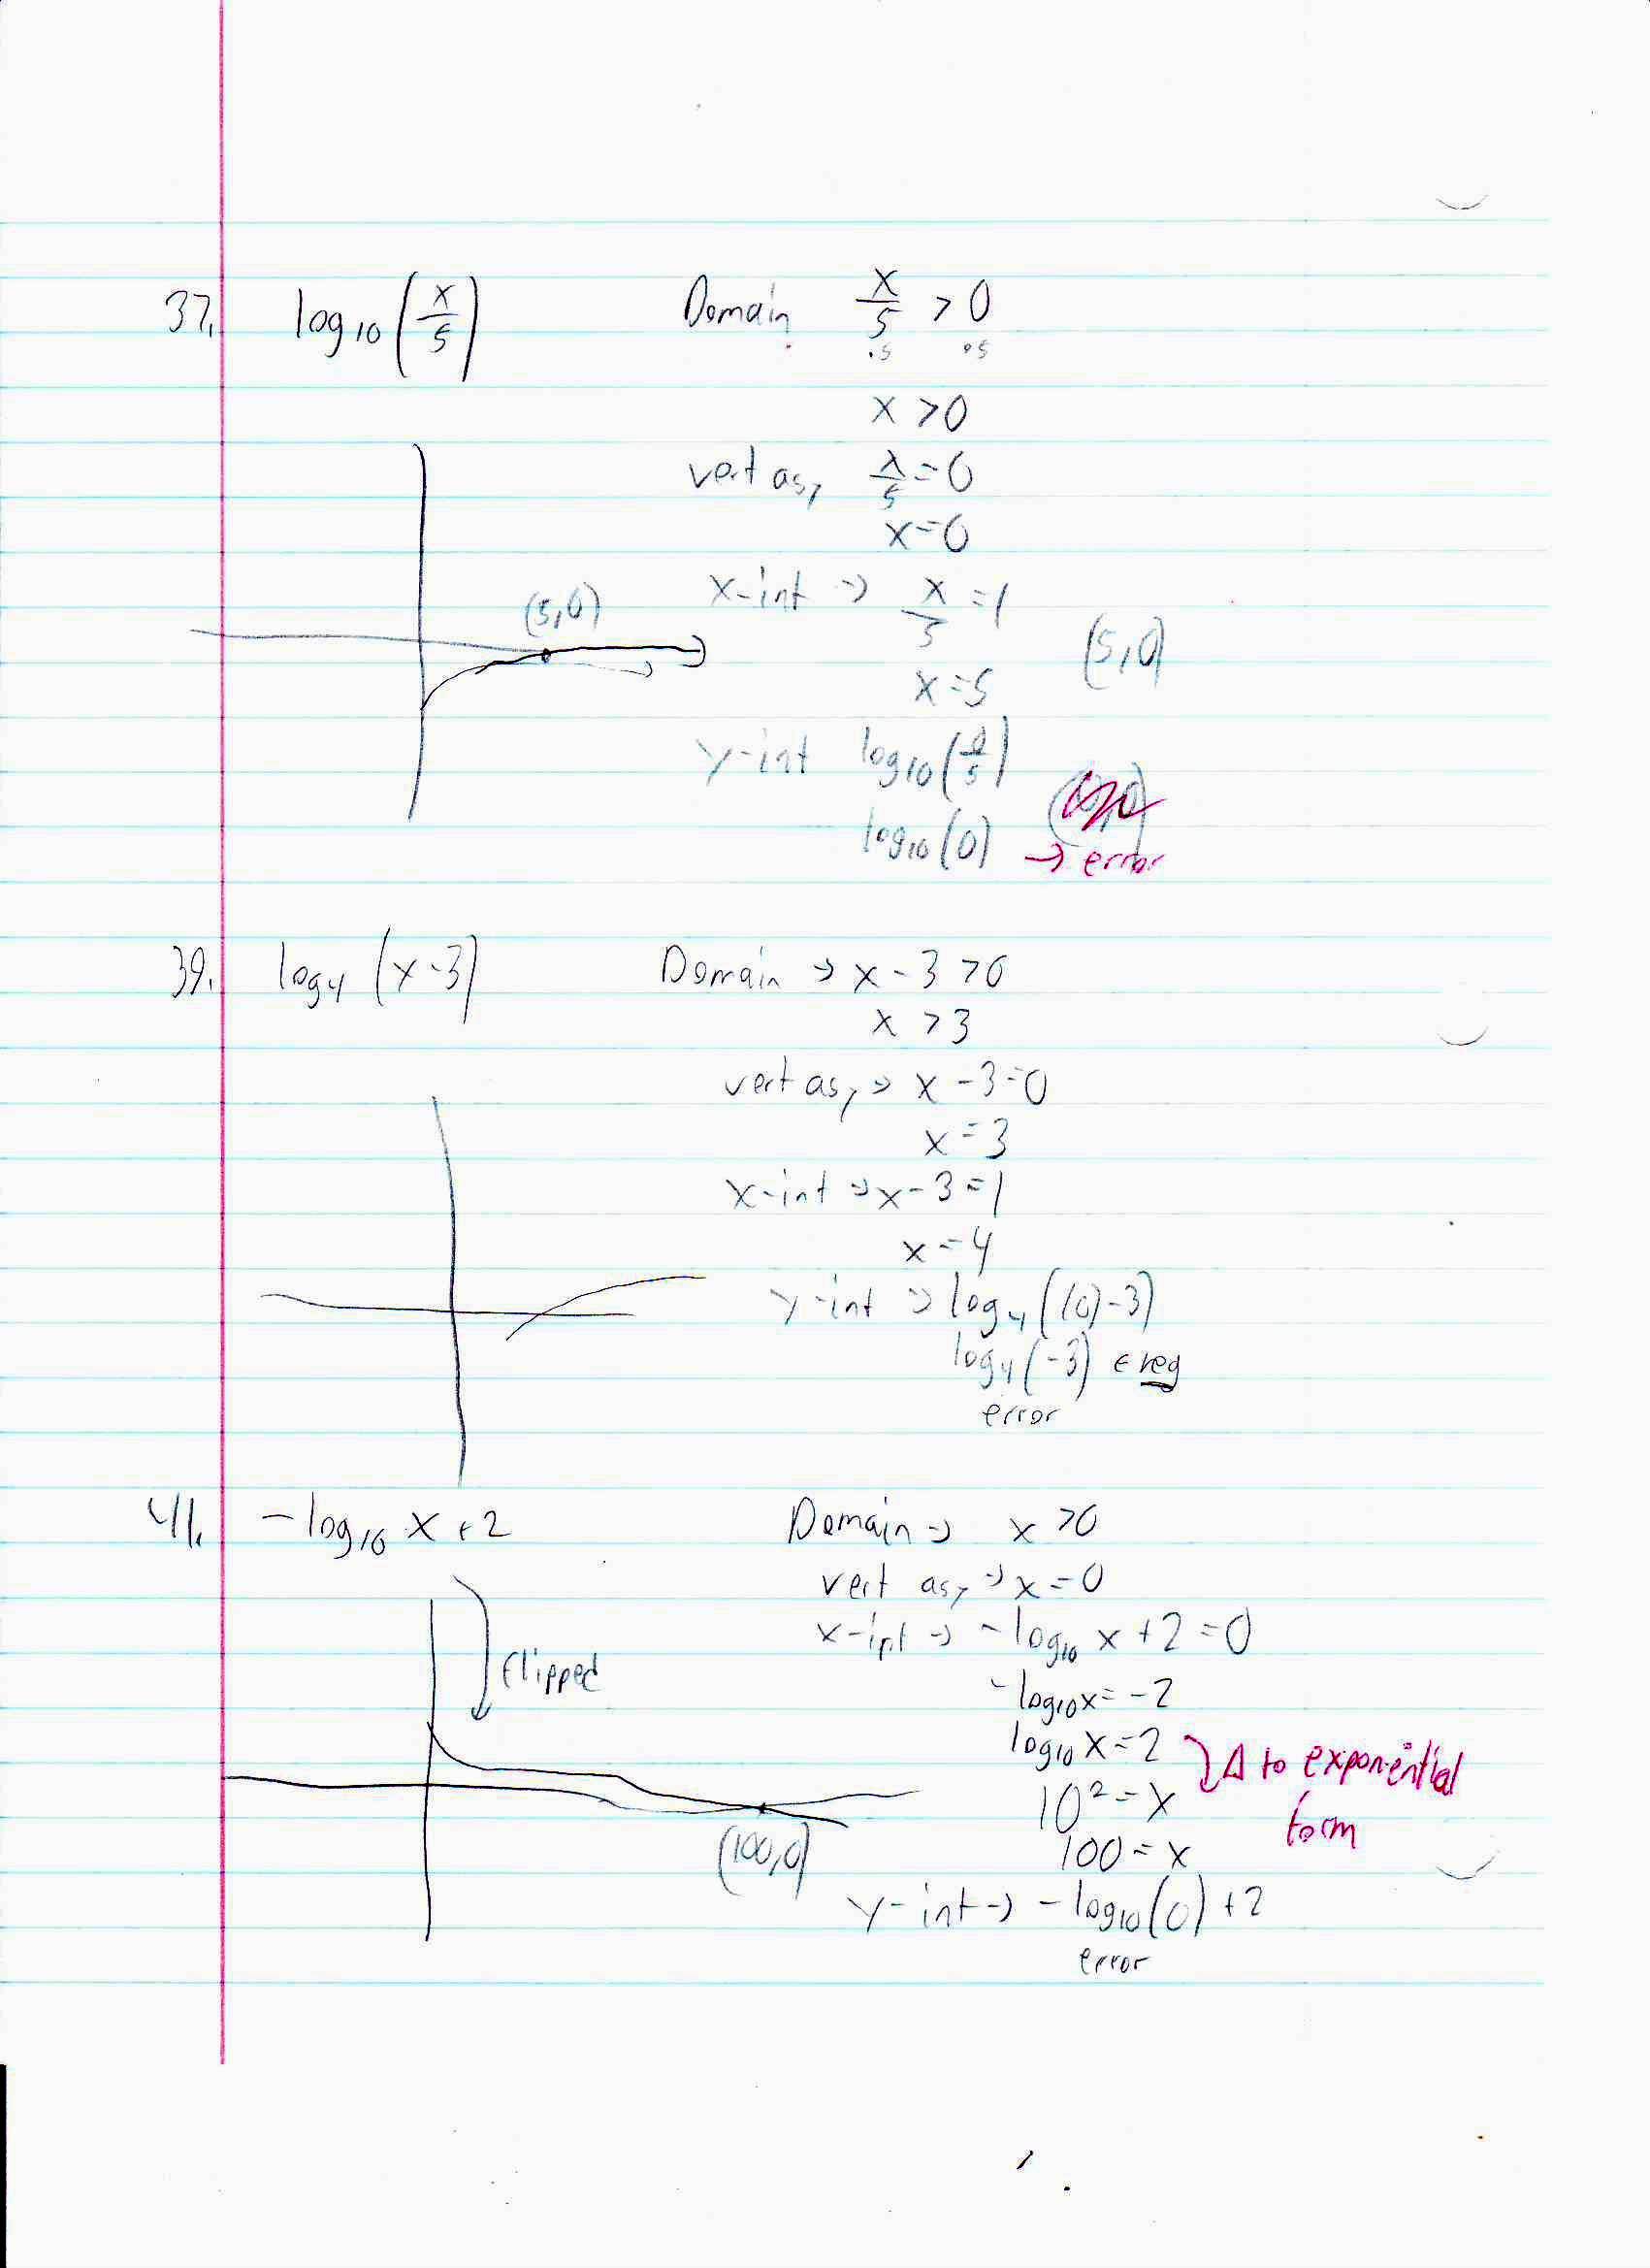 37. log10 (x/5) Domain x/5 > 0
·5 ·5
x > 0
vert asy x/5 = 0
x = 0
(5,0) x-int → x/5 = 1
(5,0)
x = 5
y-int log10 (0/5)
log10 (0) → error
39. log4 (x-3) Domain → x - 3 > 0
x > 3
vert asy → x - 3 = 0
x = 3
x-int → x - 3 = 1
x = 4
y-int → log4 ((0)-3)
log4 (-3) ← neg
error
41. -log10 x + 2 Domain → x > 0
vert asy → x = 0
x-int → -log10 x + 2 = 0
flipped
-log10 x = -2
log10 x = 2
Δ to exponential
form
10² = x
100 = x
(100,0)
y-int → -log10 (0) + 2
error